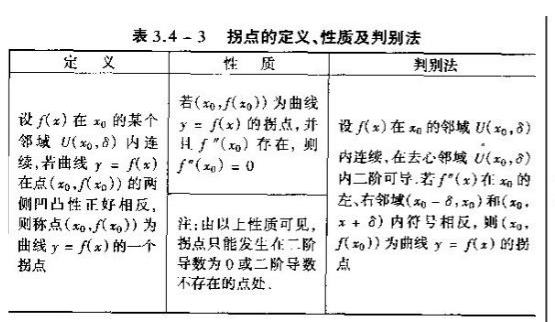 表 3.4 - 3 拐点的定义、性质及判别法
定 义
性 质
判别法
设 f(x) 在 x₀ 的某个
邻域 U(x₀,δ) 内连
续,若曲线 y = f(x)
在点(x₀,f(x₀)) 的两
侧凹凸性正好相反,
则称点(x₀,f(x₀)) 为
曲线 y = f(x)的一个
拐点
若(x₀,f(x₀)) 为曲线
y = f(x) 的拐点,并
且 f″(x₀) 存在, 则
f″(x₀) = 0
注:由以上性质可见,
拐点只能发生在二阶
导数为 0 或二阶导数
不存在的点处.
设 f(x) 在 x₀ 的邻域 U(x₀,δ)
内连续,在去心邻域 U(x₀,δ)
内二阶可导.若 f″(x) 在 x₀ 的
左、右邻域(x₀ - δ,x₀) 和(x₀,
x + δ) 内符号相反, 则(x₀,
f(x₀)) 为曲线 y = f(x) 的拐
点